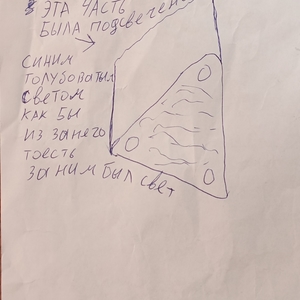 ЭТА ЧАСТЬ
БЫЛА ПОДСВЕЧЕНА
СИНИМ
ГОЛУБОВАТЫМ
СВЕТОМ
КАК БЫ
ИЗ ЗА НЕГО
ТОЕСТЬ
ЗА НИМ БЫЛ СВЕТ